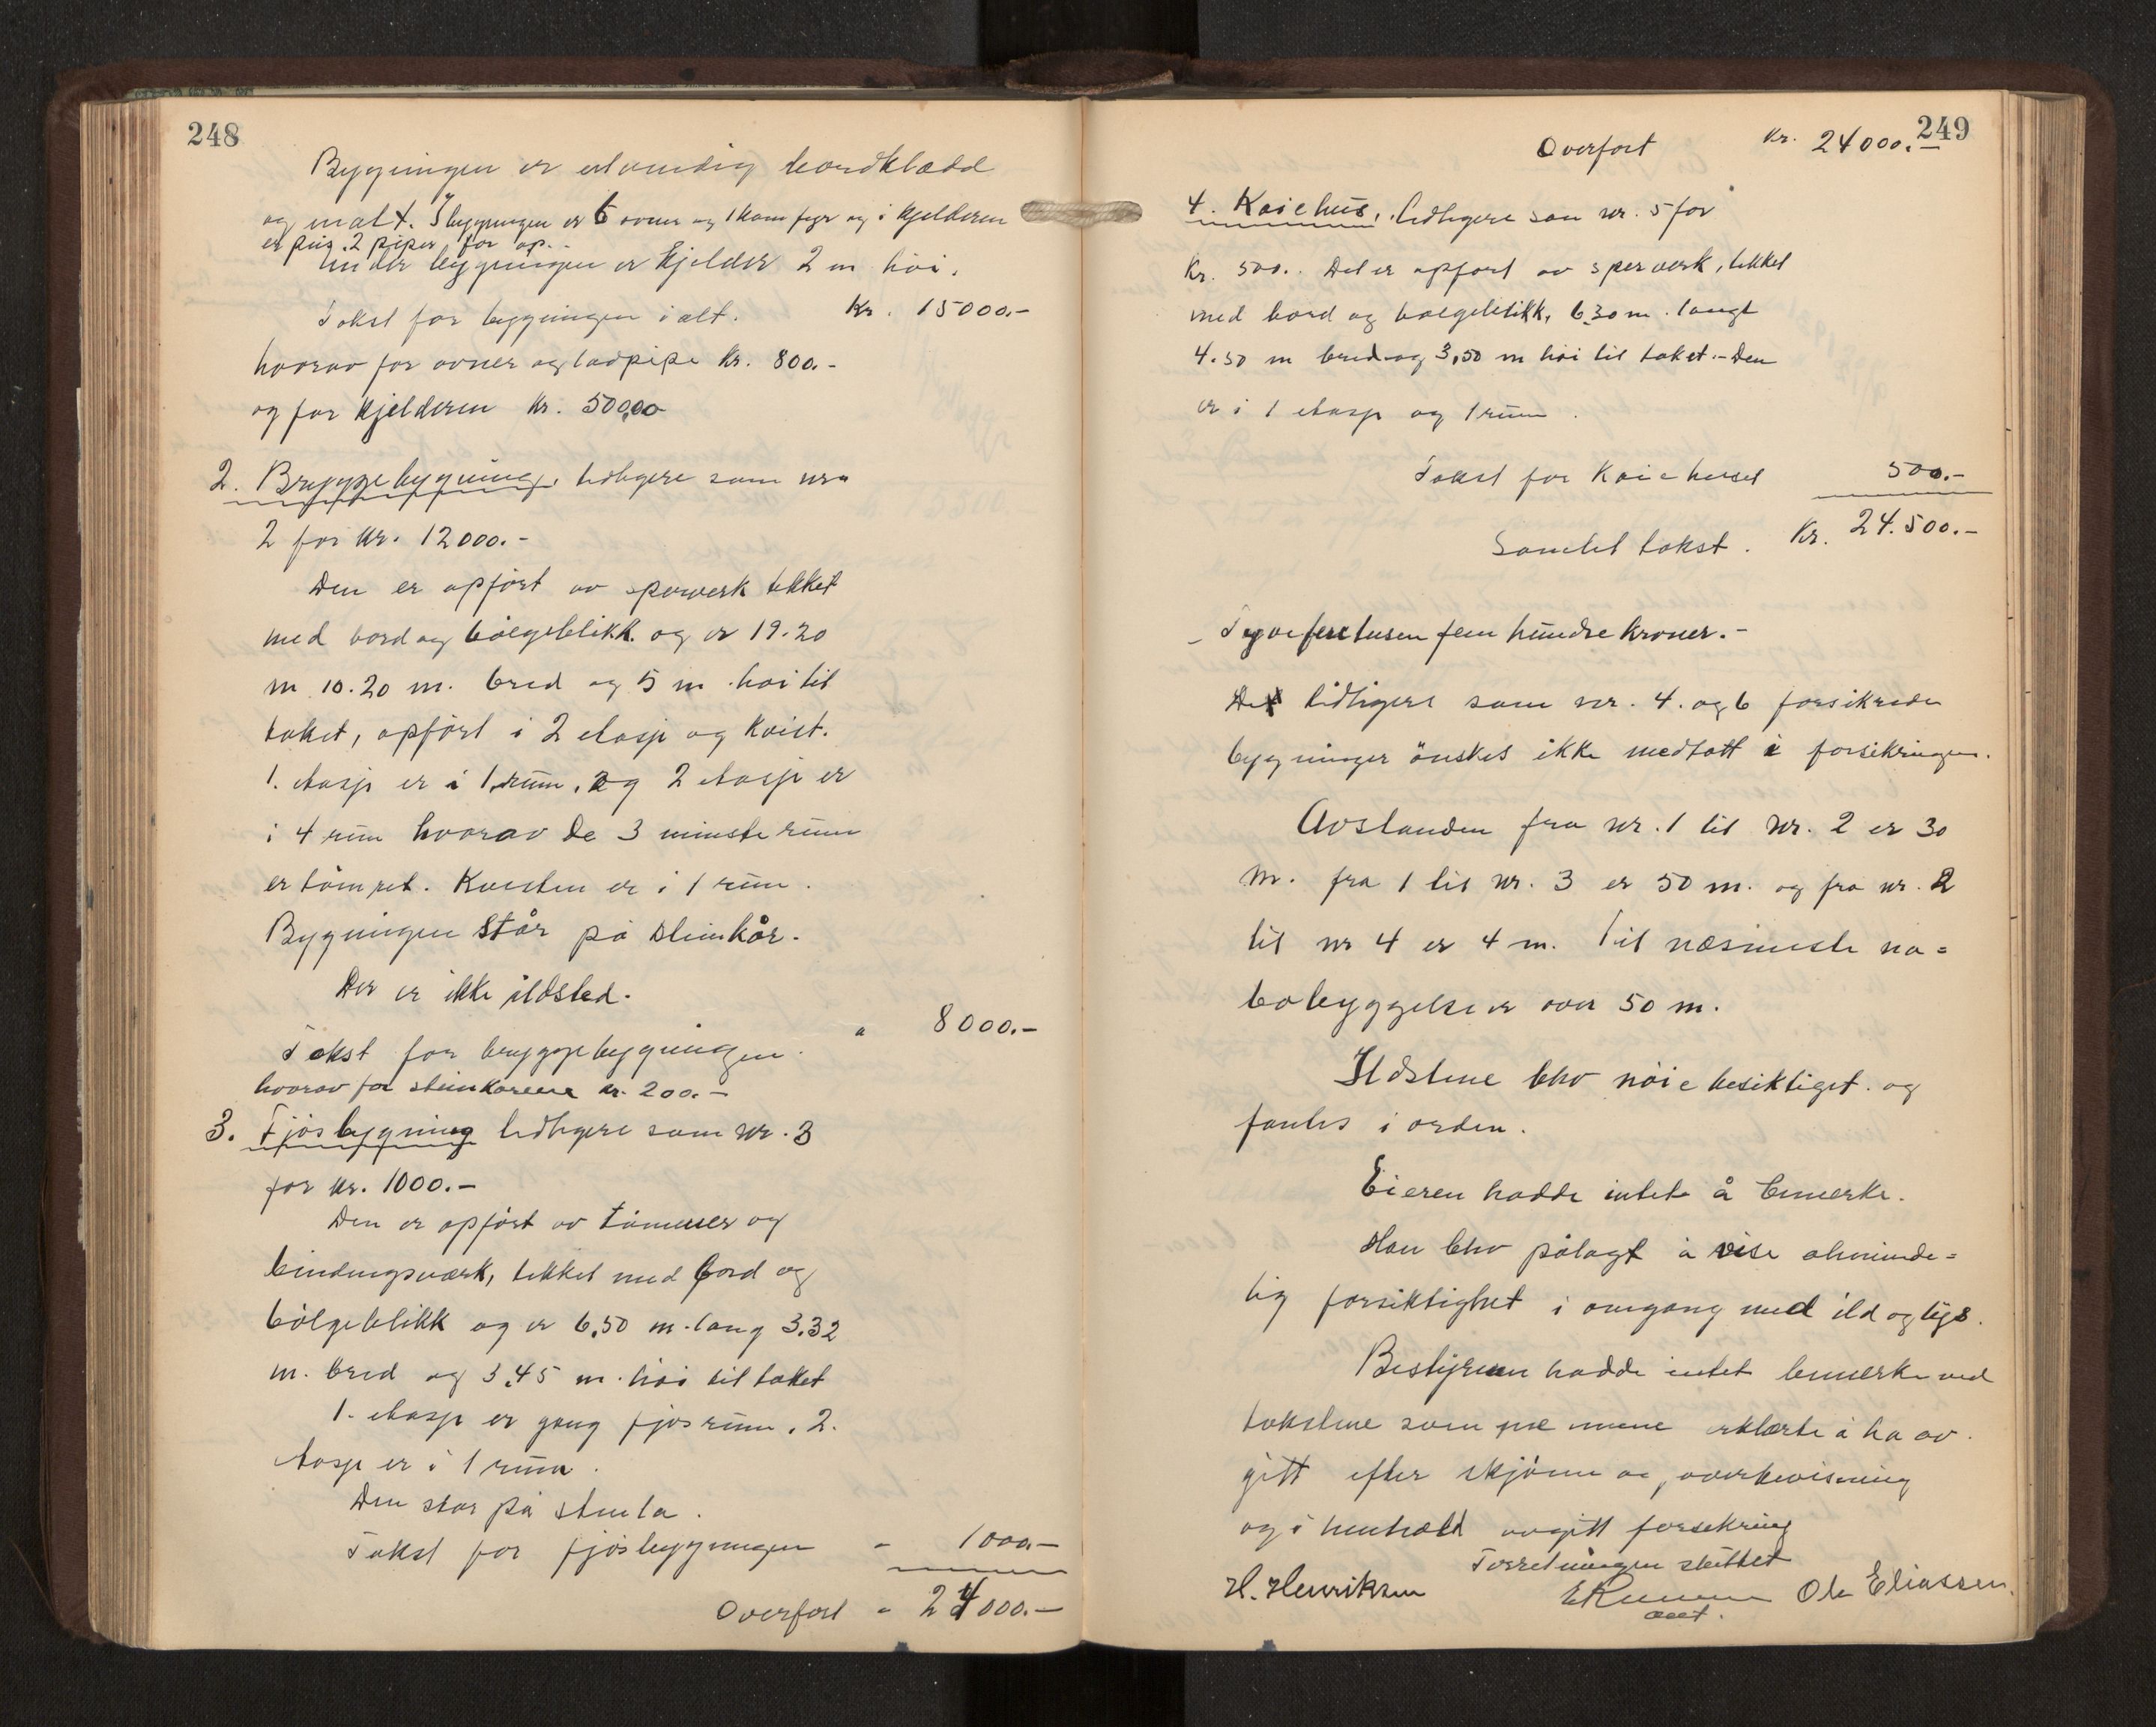 248
Bygningen er utvendig bordklædd
og malt. I bygningen er 6 ovner og 1 komfyr og i kjelderen
er 2 piper for op.
Under bygningen er kjelder 2 m høi.
Takst for bygningen i alt. Kr. 15000.-
hvorav for ovner og ladpipe kr. 800.-
og for kjelderen kr. 500,00
2. Bryggebygning, tidligere som nr.
2 for kr. 12000.-
Den er opført av sperverk tekket
med bord og bølgeblikk og er 19.20
m 10.20 m. bred og 5 m høi til
taket, opført i 2 etasje og kvist.
1. etasje er i 1 rum, og 2 etasje er
i 4 rum hvorav de 3 minste rum
er tømret. Kvisten er i 1 rum.
Bygningen står på steinkar.
Der er ikke ildsted.
Takst for bryggebygningen. " 8000.-
hvorav for steinkarene kr. 200.-
3. Fjøsbygning tidligere som nr. 3
for kr. 1000.-
Den er opført av tømmer og
bindingsværk, tekket med bord og
bølgeblikk og er 6,50 m. lang 3.32
m. bred og 3,45 m. høi til taket
1. etasje er gang fjøsrum. 2.
etasje er i 1 rum.
Den står på
Takst for fjøsbygningen " 1000.-
Overført " 24000.-
249
Overført kr. 24000.-
4. Kaiehus, tidligere som nr. 5 for
kr. 500.. Det er opført av sperverk, tekket
med bord og bølgeblikk, 6.30 m. langt
4.50 m bred og 3,50 m høi til taket. - Den
er i 1 etasje og 1 rum.
Takst for Kaiehuset 500.-
Samlet takst. Kr. 24.500.-
- Tyvefiretusen fem hundre kroner.-
De tidligere som nr. 4. og 6 forsikrede
bygninger ønskes ikke medtatt i forsikringen.
Avstanden fra nr. 1 til nr. 2 er 30
m. fra 1 til nr. 3 er 50 m. og fra nr. 2
til nr 4 er 4 m. Til næsmeste na=
bobyggelse er over 50 m.
Ildstene blev nøie besiktiget og
fantes i orden.
Eieren hadde intet å bemerke.
Han blev pålagt å vise alminde=
lig forsiktighet i omgang med ild og lys.
Bestyreren hadde intet bemerke ved
takstene som mene erklærte å ha av
gitt efter skjønn og overbevisning
og i henhold avgitt forsikring
Forretningen sluttet
H. Henriksen Ole Eliassen.